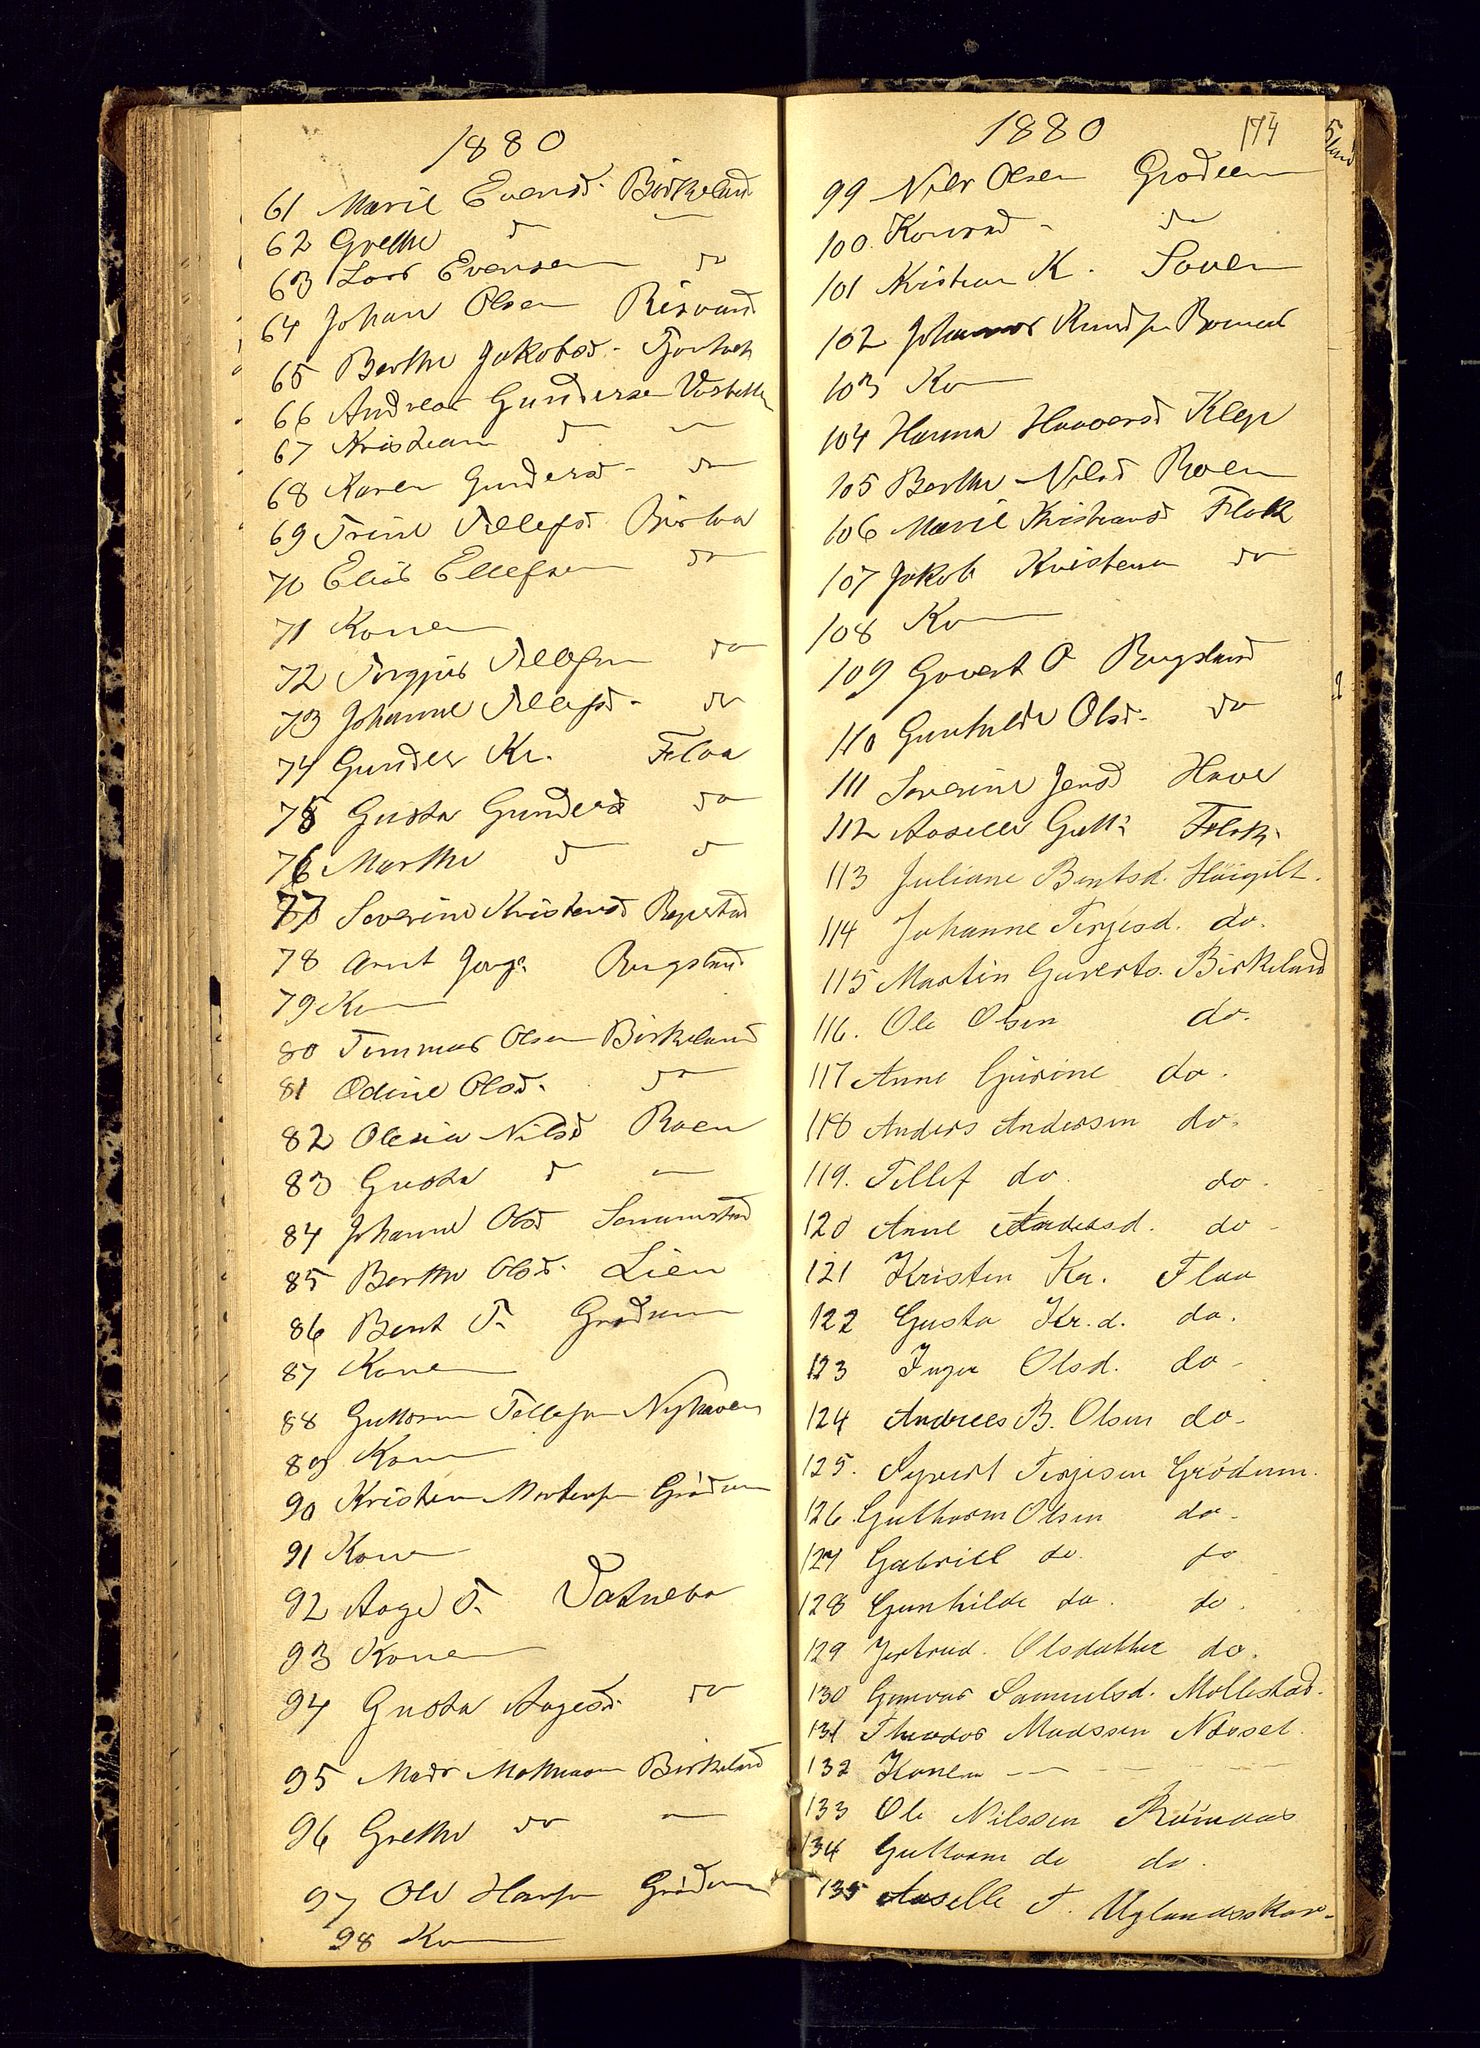 1880
61 Marie Evensd. Birkeland
62 Grethe d —
63 Lars Evensen do
64 Johan Olsen Risvand
65 Berthe Jakobsd.
66 Andreas Gundersen
67 Kristian d —
68 Karen Gundersd. do
69 Trine Tellefsd. Birkeland
70 Elias Ellefsen do
71 Konen
72 Torgjus Tellefsen do
73 Johanne Tellefsd. do
74 Gunder Kr. Flaa
75 Gusta Gundersd do
76 Marthe d d
77 Severine Kristensd Repstad
78 Arnt Jørg. Bugsland
79 Kon
80 Tommas Olsen Birkeland
81 Odine Olsd. do
82 Olesia Nilsd Roen
83 Gusta d —
84 Johanne Olsd
85 Berthe Olsd. Lien
86 Bent T. Grødum
87 Konen
88 Guttorm Tellefsen Nyhaven
89 Konen
90 Kristen Mortensen Grødum
91 Konen
92 Aage T. Vatnebo
93 Konen
94 Gusta Aagesd. do
95 Mads Birkeland
96 Grethe do —
97 Ole Hansen Grødum
98 Kon
1880 174
99 Nils Olsen Grødum
100. Konrad - do
101 Kristian K. Soven
102 Johannes Knudsen
103 Kon
104 Hanna Haaversd Klep
105 Berthe Nilsd Roen
106 Marie Kristiansd Flak
107 Jakob Kristensen do
108 Kon
109 Govert O Bugsland
110 Gunhilde Olsd. do
111 Severine Jensd Have
112 Aaselle Gutt. Flak
113 Juliane Bentsd. Høigilt.
114 Johanne Terjesd. do.
115 Martin Guverts. Birkeland
116. Ole Olsen do.
117 Anne Gurine do.
118 Anders Andersen do.
119. Tellef do. do.
120 Anne Andersd. do.
121 Kristen Kr. Flaa
122 Gusta Kr.d. do.
123 Inger Olsd. do.
124 Andreas B. Olsen do.
125. Syvert Terjesen Grödum.
126. Guthorm Olsen do.
127 Gabriel do. do
128 Gunhilde do. do.
129 Jertrud. Olsdatter do.
130 Gunvor Samuelsd. Mollestad.
131 Theodor Madssen Næset.
132 Konen — —
133 Ole Nilssen Römaas
134 Guttorm do do.
135 Aaselle T. Uglandsskar.